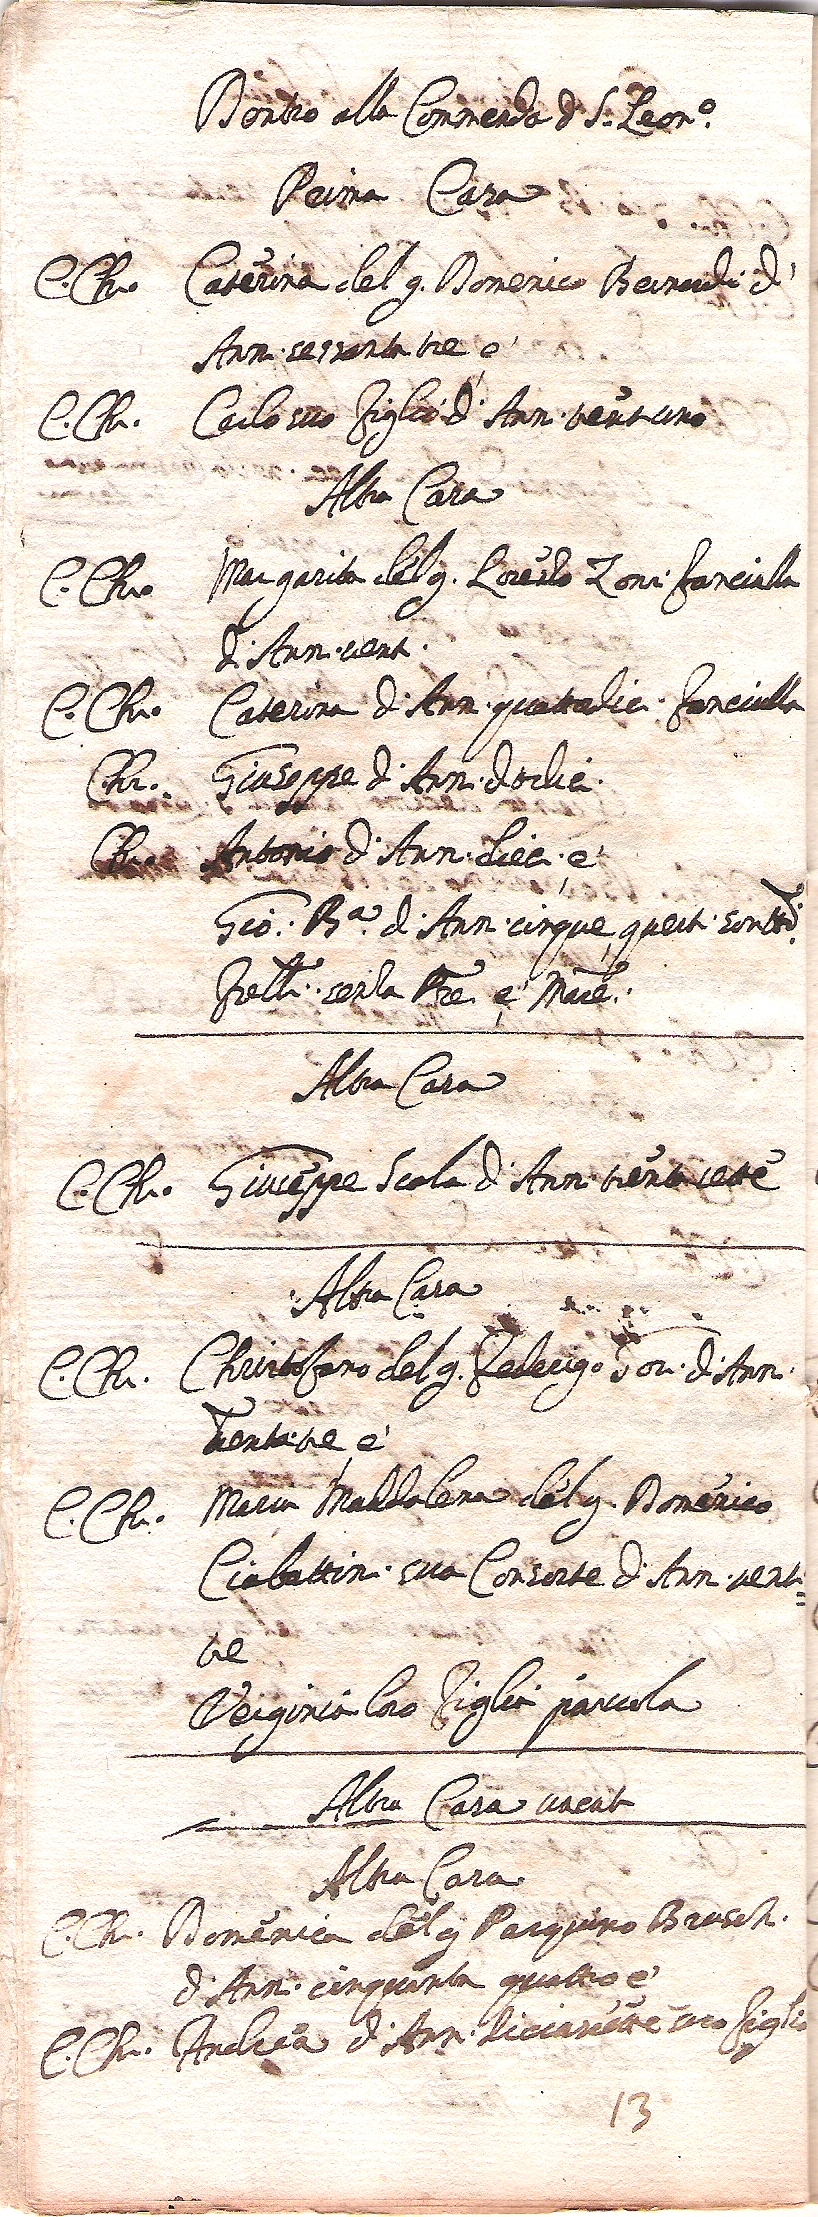 Dentro alla Commenda d S. Leon.º
Prima Casa
C. Ch. Caterina del q. Domenico Bernardi d'
Ann. sessanta tre e
C. Ch. Carlo suo figlio d' Ann. vent uno
Altra Casa
C. Ch. Margarita del q. Lorenzo Zoni fanciulla
d' Ann. vent.
C. Ch. Caterina d' Ann. quattordici fanciulla
Ch. Giuseppe d' Ann. dodici.
Ch. Antonio d' Ann. dieci e
Gio: Bª d' Ann. cinque, questi sontti.
frelli. senza Pre e Mare.
Altra Casa
C. Ch. Giuseppe Scala d' Ann. trenta sette
Altra Casa
C. Ch. Christofano del q. Federigo d' Ann.
Trenta tre e
C. Ch. Maria Maddalena del q. Domenico
Ciabattini sua Consorte d' Ann. vent=
tre
Verginia loro figlia parvula
Altra Casa vacat
Altra Casa
C. Ch. Domenica del q. Pasquino Brusch.
d' Ann. cinquanta quattro e
C. Ch. Andrea d' Ann. diciasette suo figlio
13